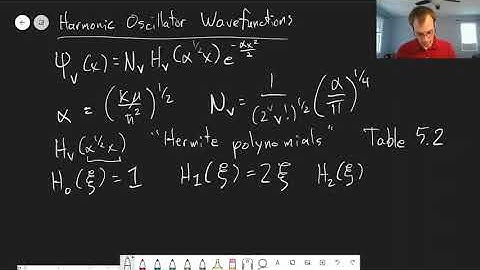 Harmonic Oscillator Wavefunctions
ψ_v(x) = N_v H_v(α^{1/2}x) e^{-αx²/2}
α = (kμ/ħ²)^{1/2} N_v = 1/(2^v v!)^{1/2} (α/π)^{1/4}
H_v(α^{1/2}x) "Hermite polynomials" Table 5.2
H_0(ξ) = 1 H_1(ξ) = 2ξ H_2(ξ)